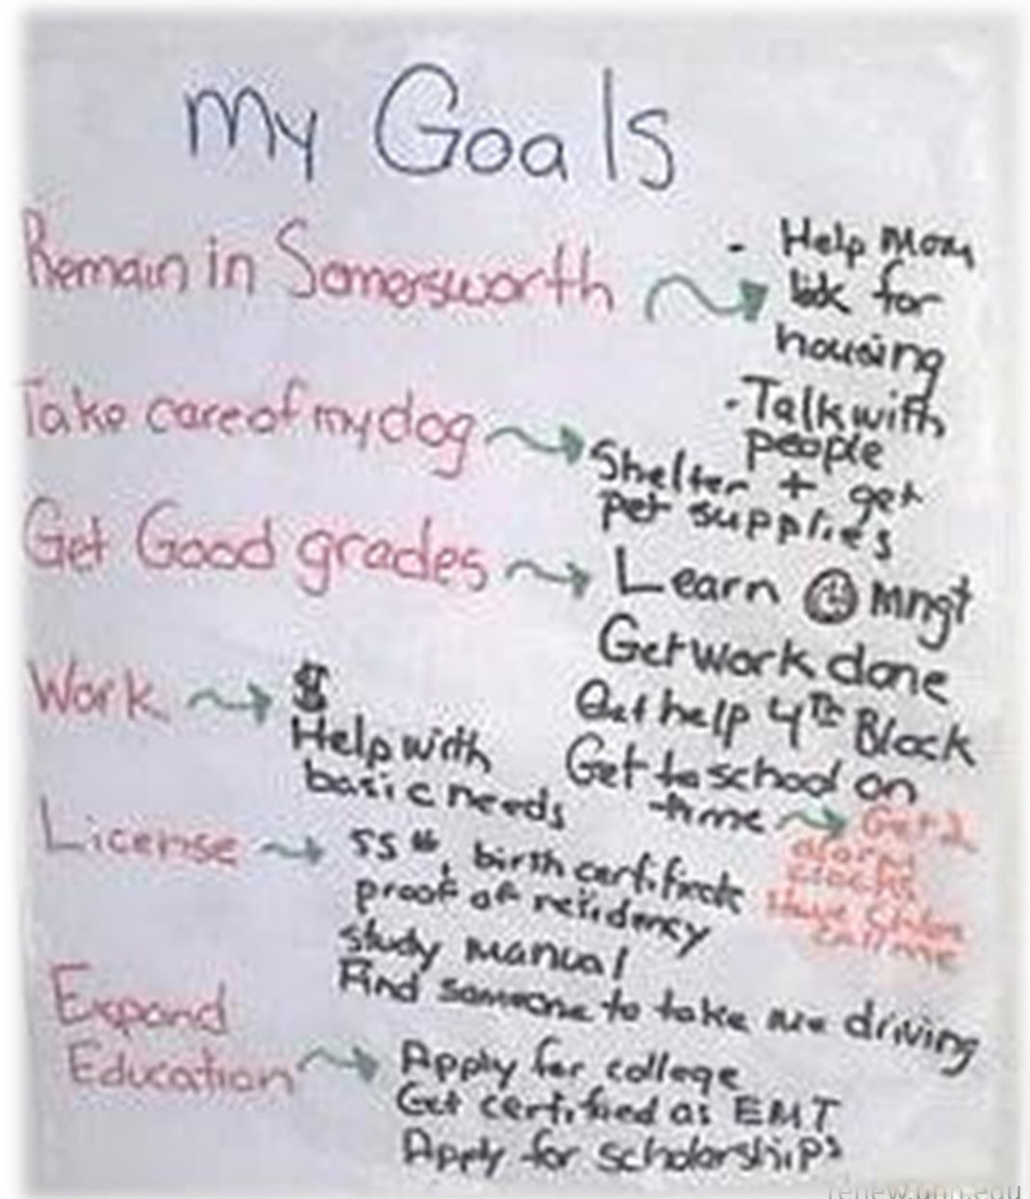 My Goals
Remain in Somersworth
- Help Mom
look for
housing
- Talk with
people
Take care of my dog
Shelter + get
pet supplies
Get Good grades
Learn mngt
Get work done
Get help 4th Block
Get to school on
time
Get 2
alarm
clocks
Have
call me
Work
$
Help with
basic needs
License
SS#, birth certificate
proof of residency
study manual
Find someone to take me driving
Expand
Education
Apply for college
Get certified as EMT
Apply for scholarships
renew.unh.edu